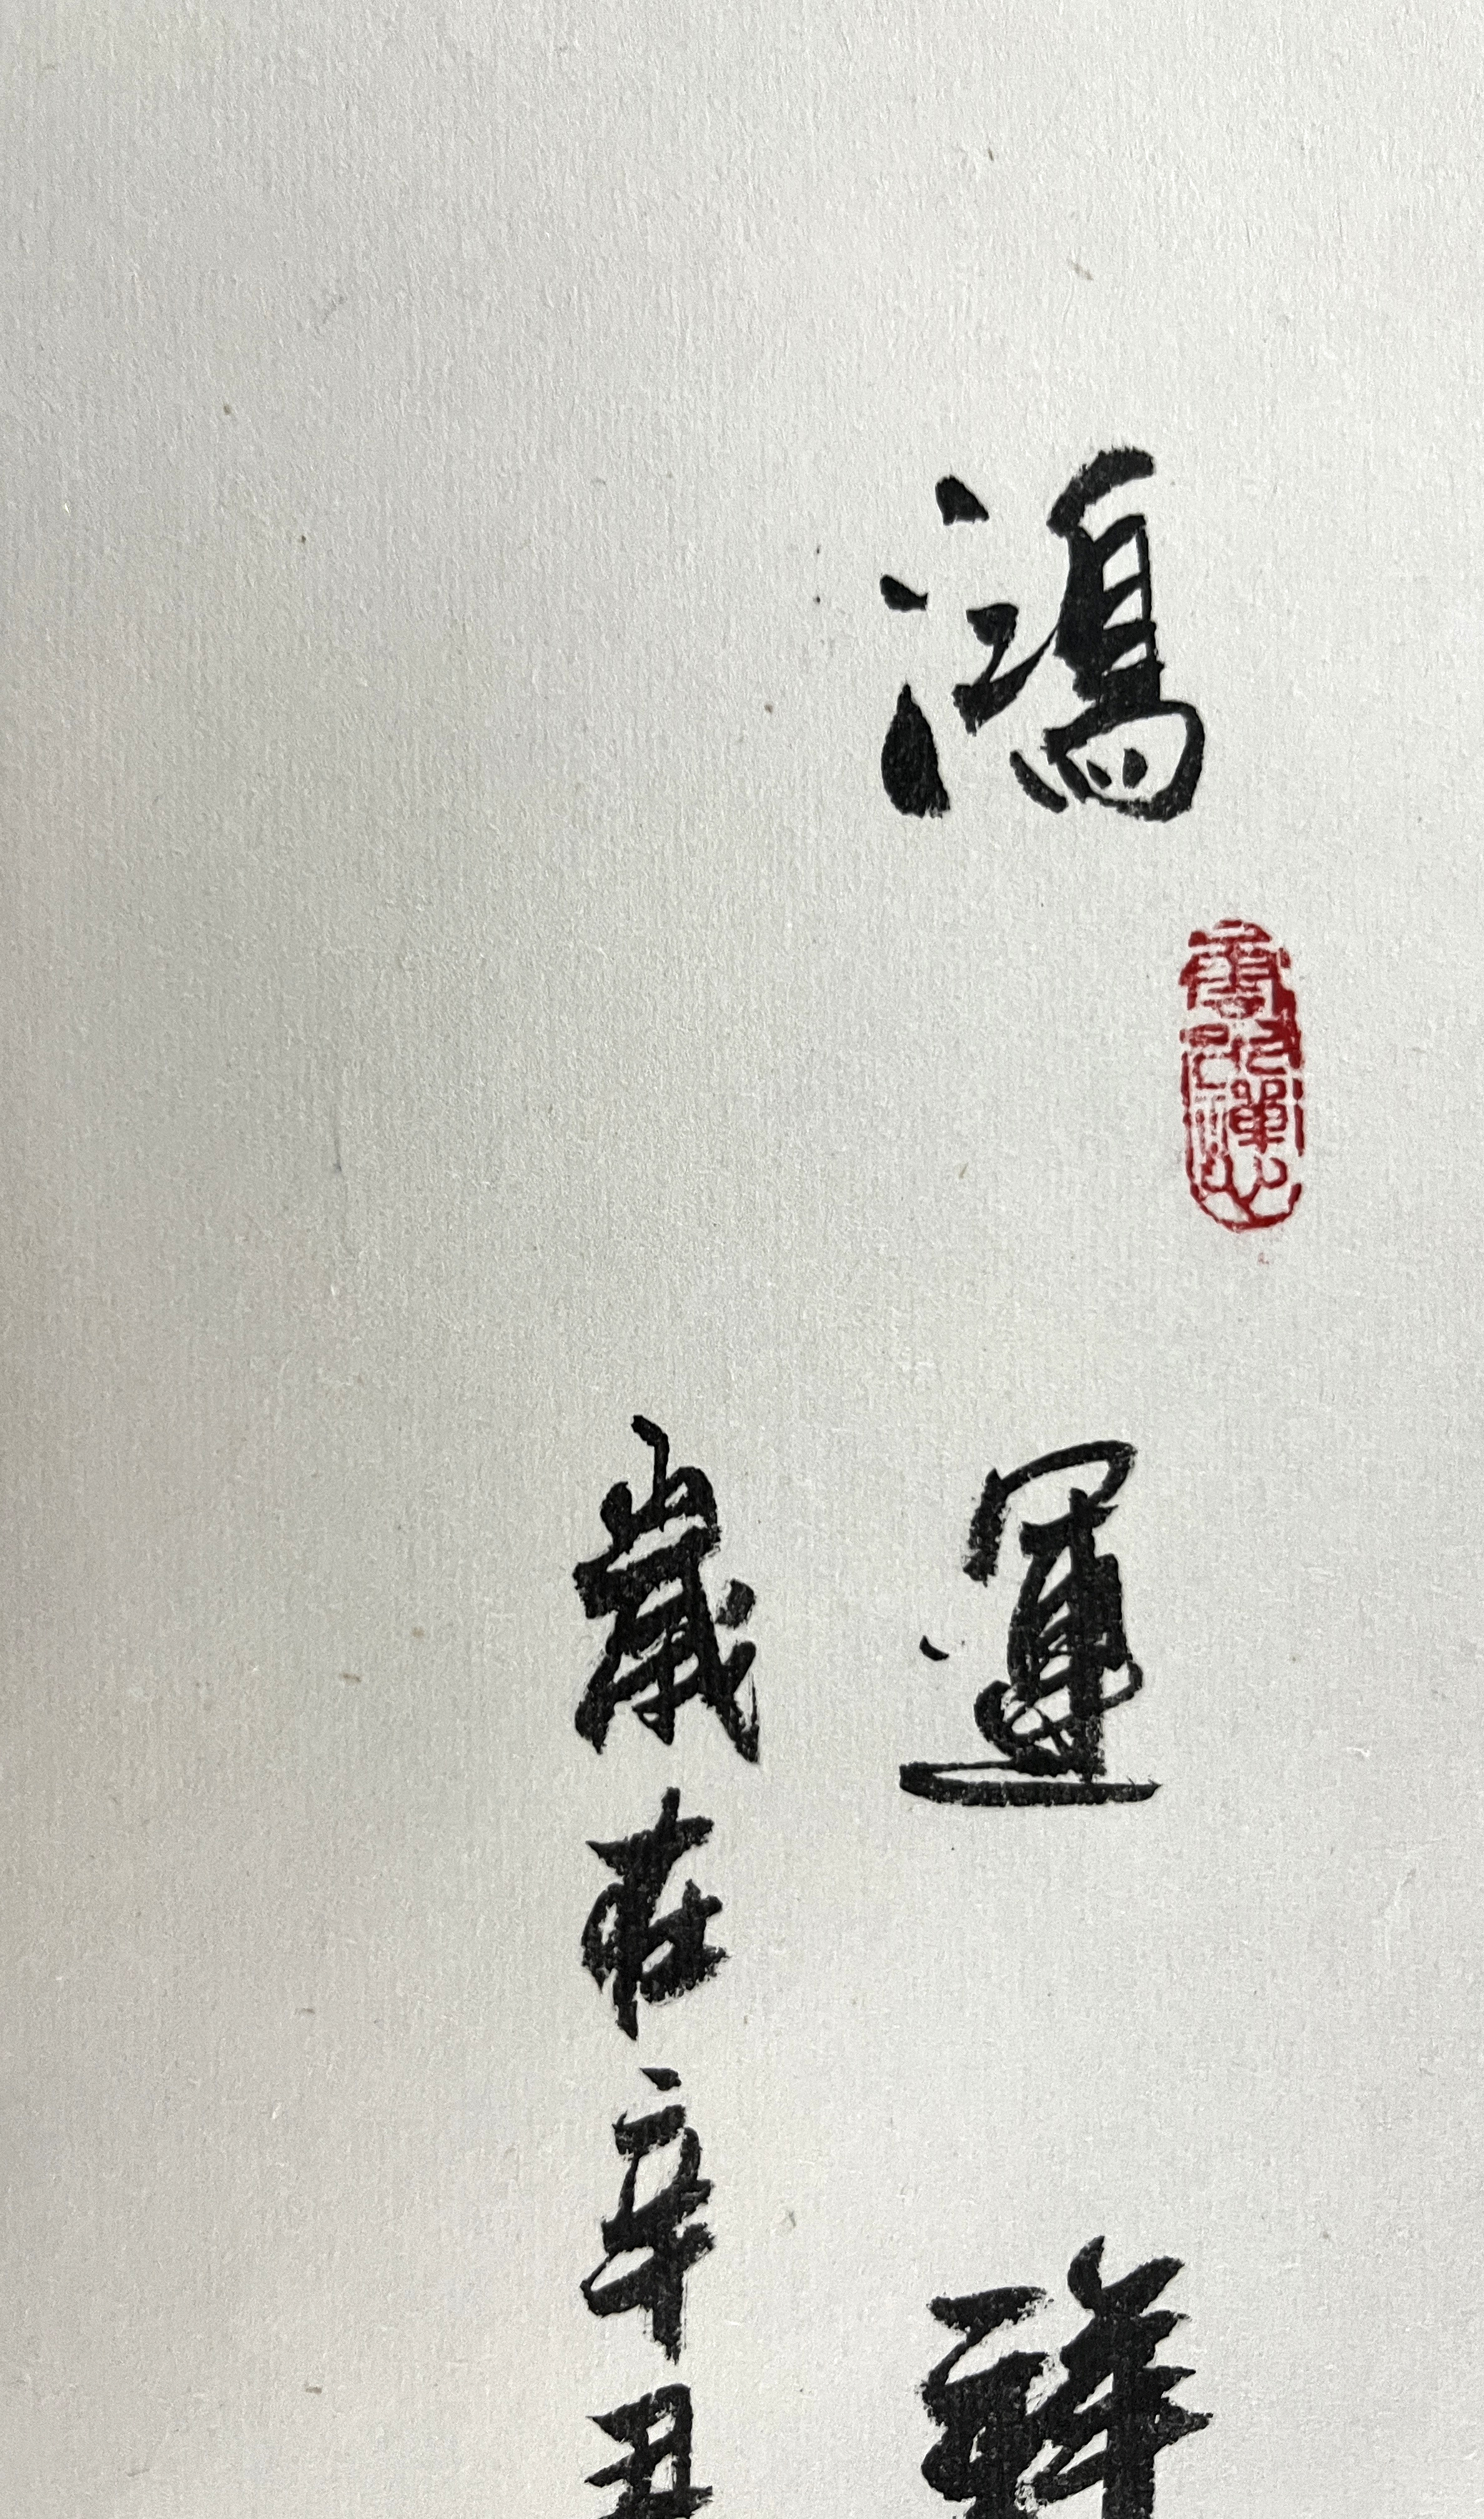 鴻運祥
歲在辛丑